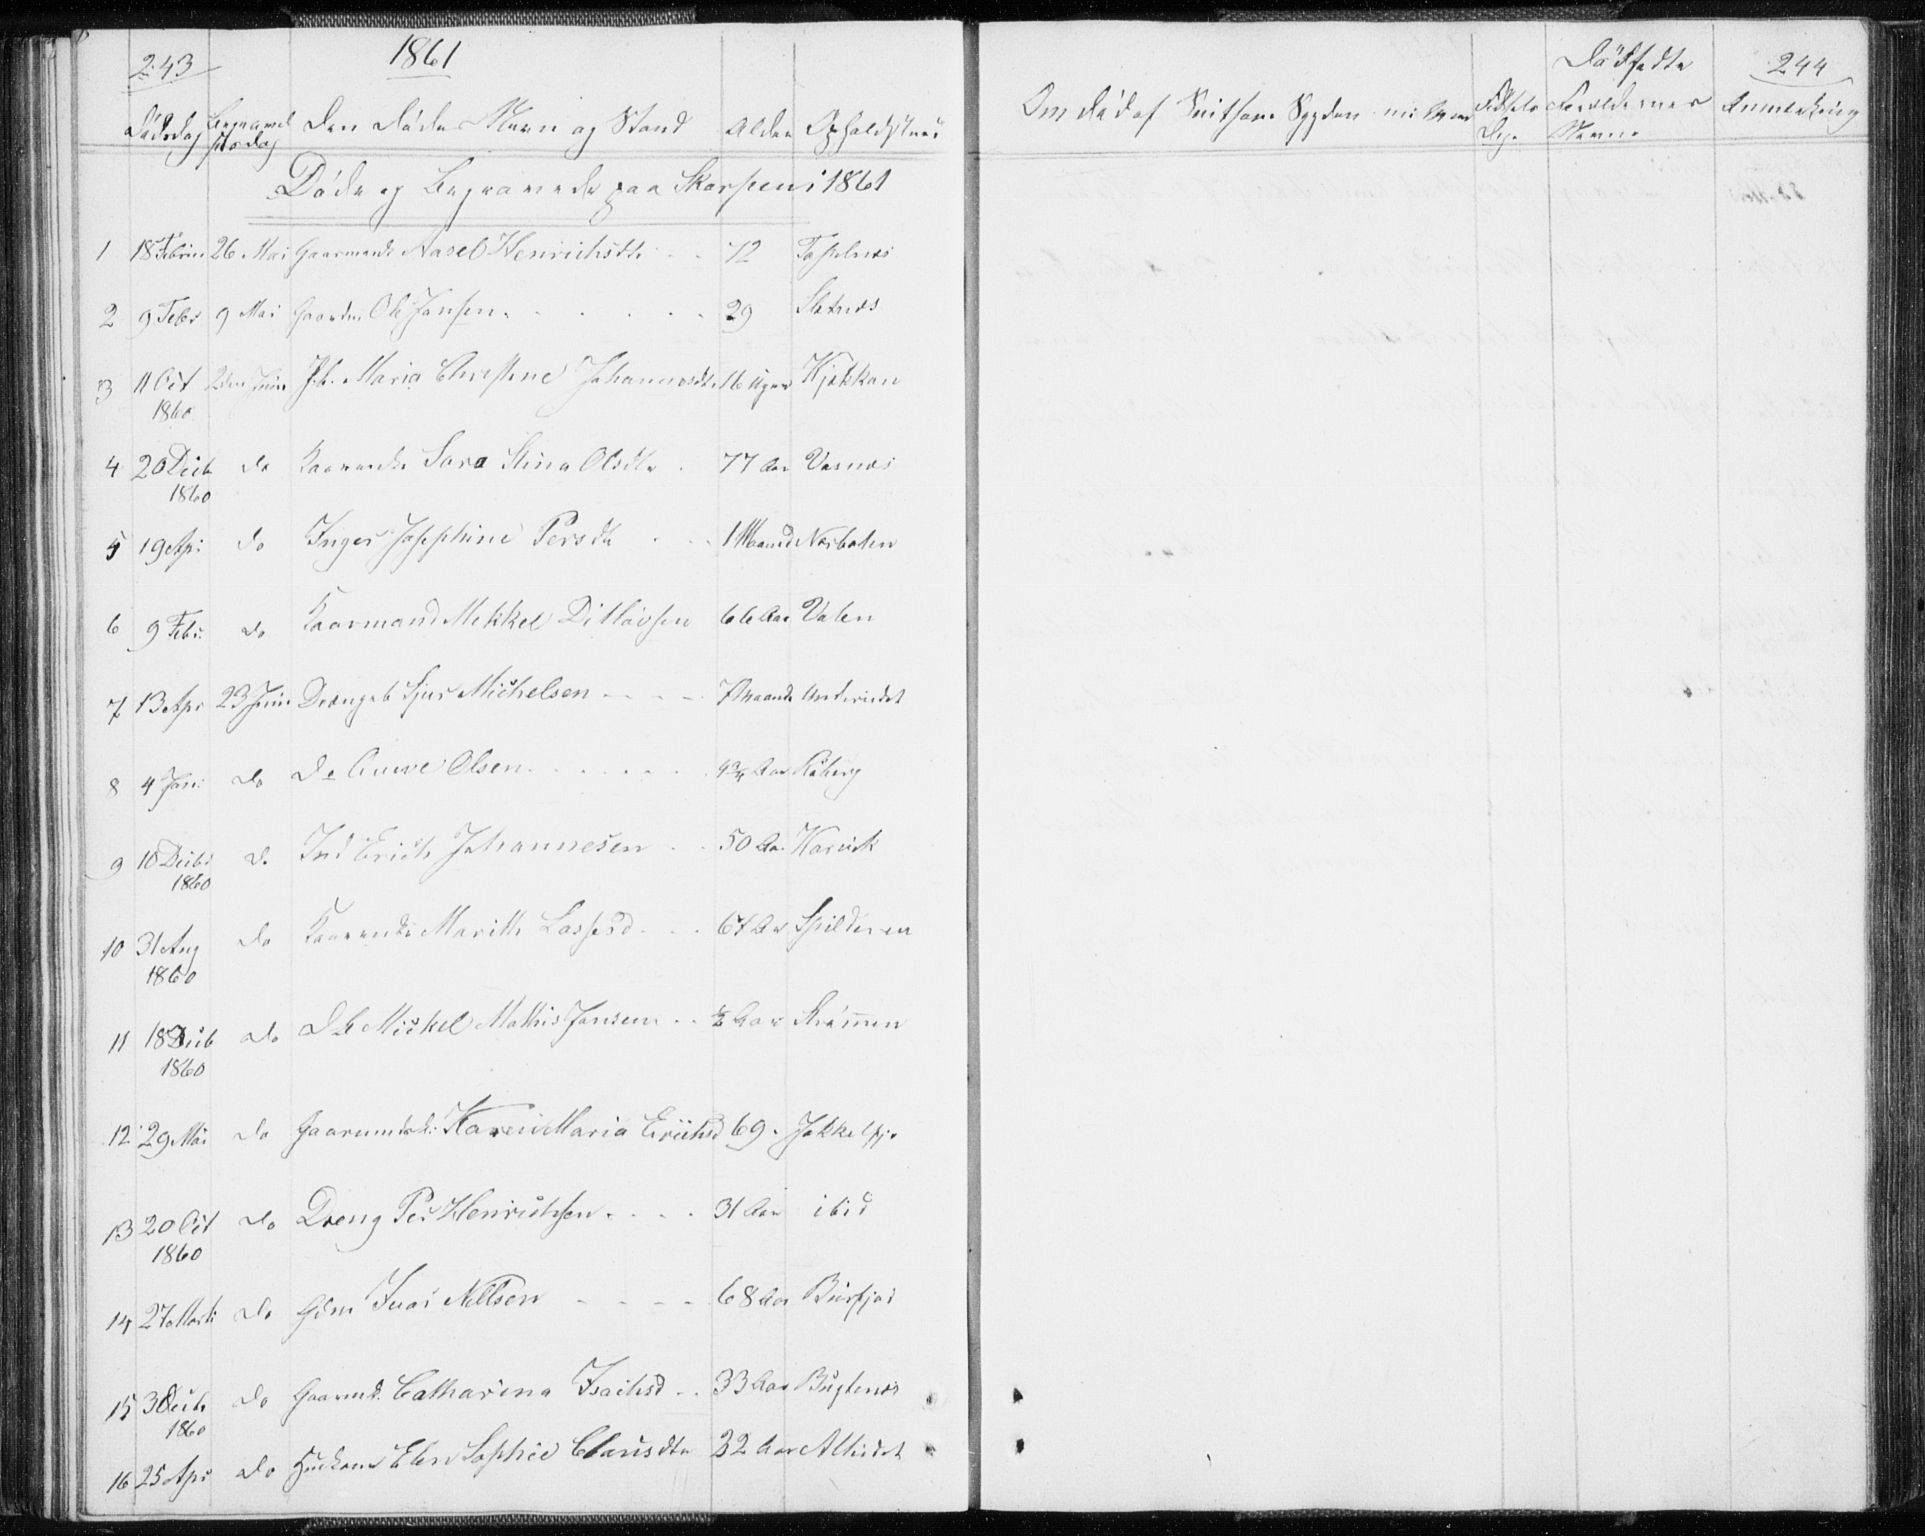 243 1861
Dødsdag Begravelsesdag Den Dødes Navn og Stand Alder Opholdsted
Døde og Begravede paa Skorpen i 1861
1 18 Februar 26 Mai Gaarmands Aasel Henrichsdtr 72 Toppelnes
2 9 Febr 9 Mai Gaardm Ole Jansen 29 Sletnes
3 11 Oct 2den Juni Pb. Maria Christine Johannesdtr 16 Uger Kjækkan
1860
4 20 Decb do Kaarmands Sara Stina Olsdtr 77 Aar Vasnes
1860
5 19 Apr do Inger Josephine Persdtr 1 Maaned Norboten
6 9 Febr. do Kaarmand Mekkel Ditløvsen 66 Aar Valen
7 13 Apr 23 Juni Drengeb Sjur Michelsen 7 Maaneder Andsnidet
8 4 Jan do Do Anne Olsen 9 3/4 Aar Aaberg
9 10 Decbr do Ind Erich Johannesen 50 Aar Karvik
1860
10 31 Aug do Kaarmds Marith Lassesd 67 Aar Spilderen
1860
11 18 Decb do Db Mickel Mathis Jansen 1/2 Aar Strømmen
1860
12 29 Mai do Gaarmands: Karen Maria Erichsd 69. Jokkelfj.
13 20 Oct do Dreng Per Henrichsen 31 Aar ibid
1860
14 27 Marts do Gdm Ivar Nilsen 68 Aar Burfjor
15 3 Decb do Gaarmd. Catharina Isachsd 33 Aar Bugtenes
1860
16 25 Apr do Huskone Elen Sophie Clausdtr 32 Aar Alteidet
244
Om Død af Smitsom Sygdom Dødfødte
Forældrenes Anmerkning
Navn